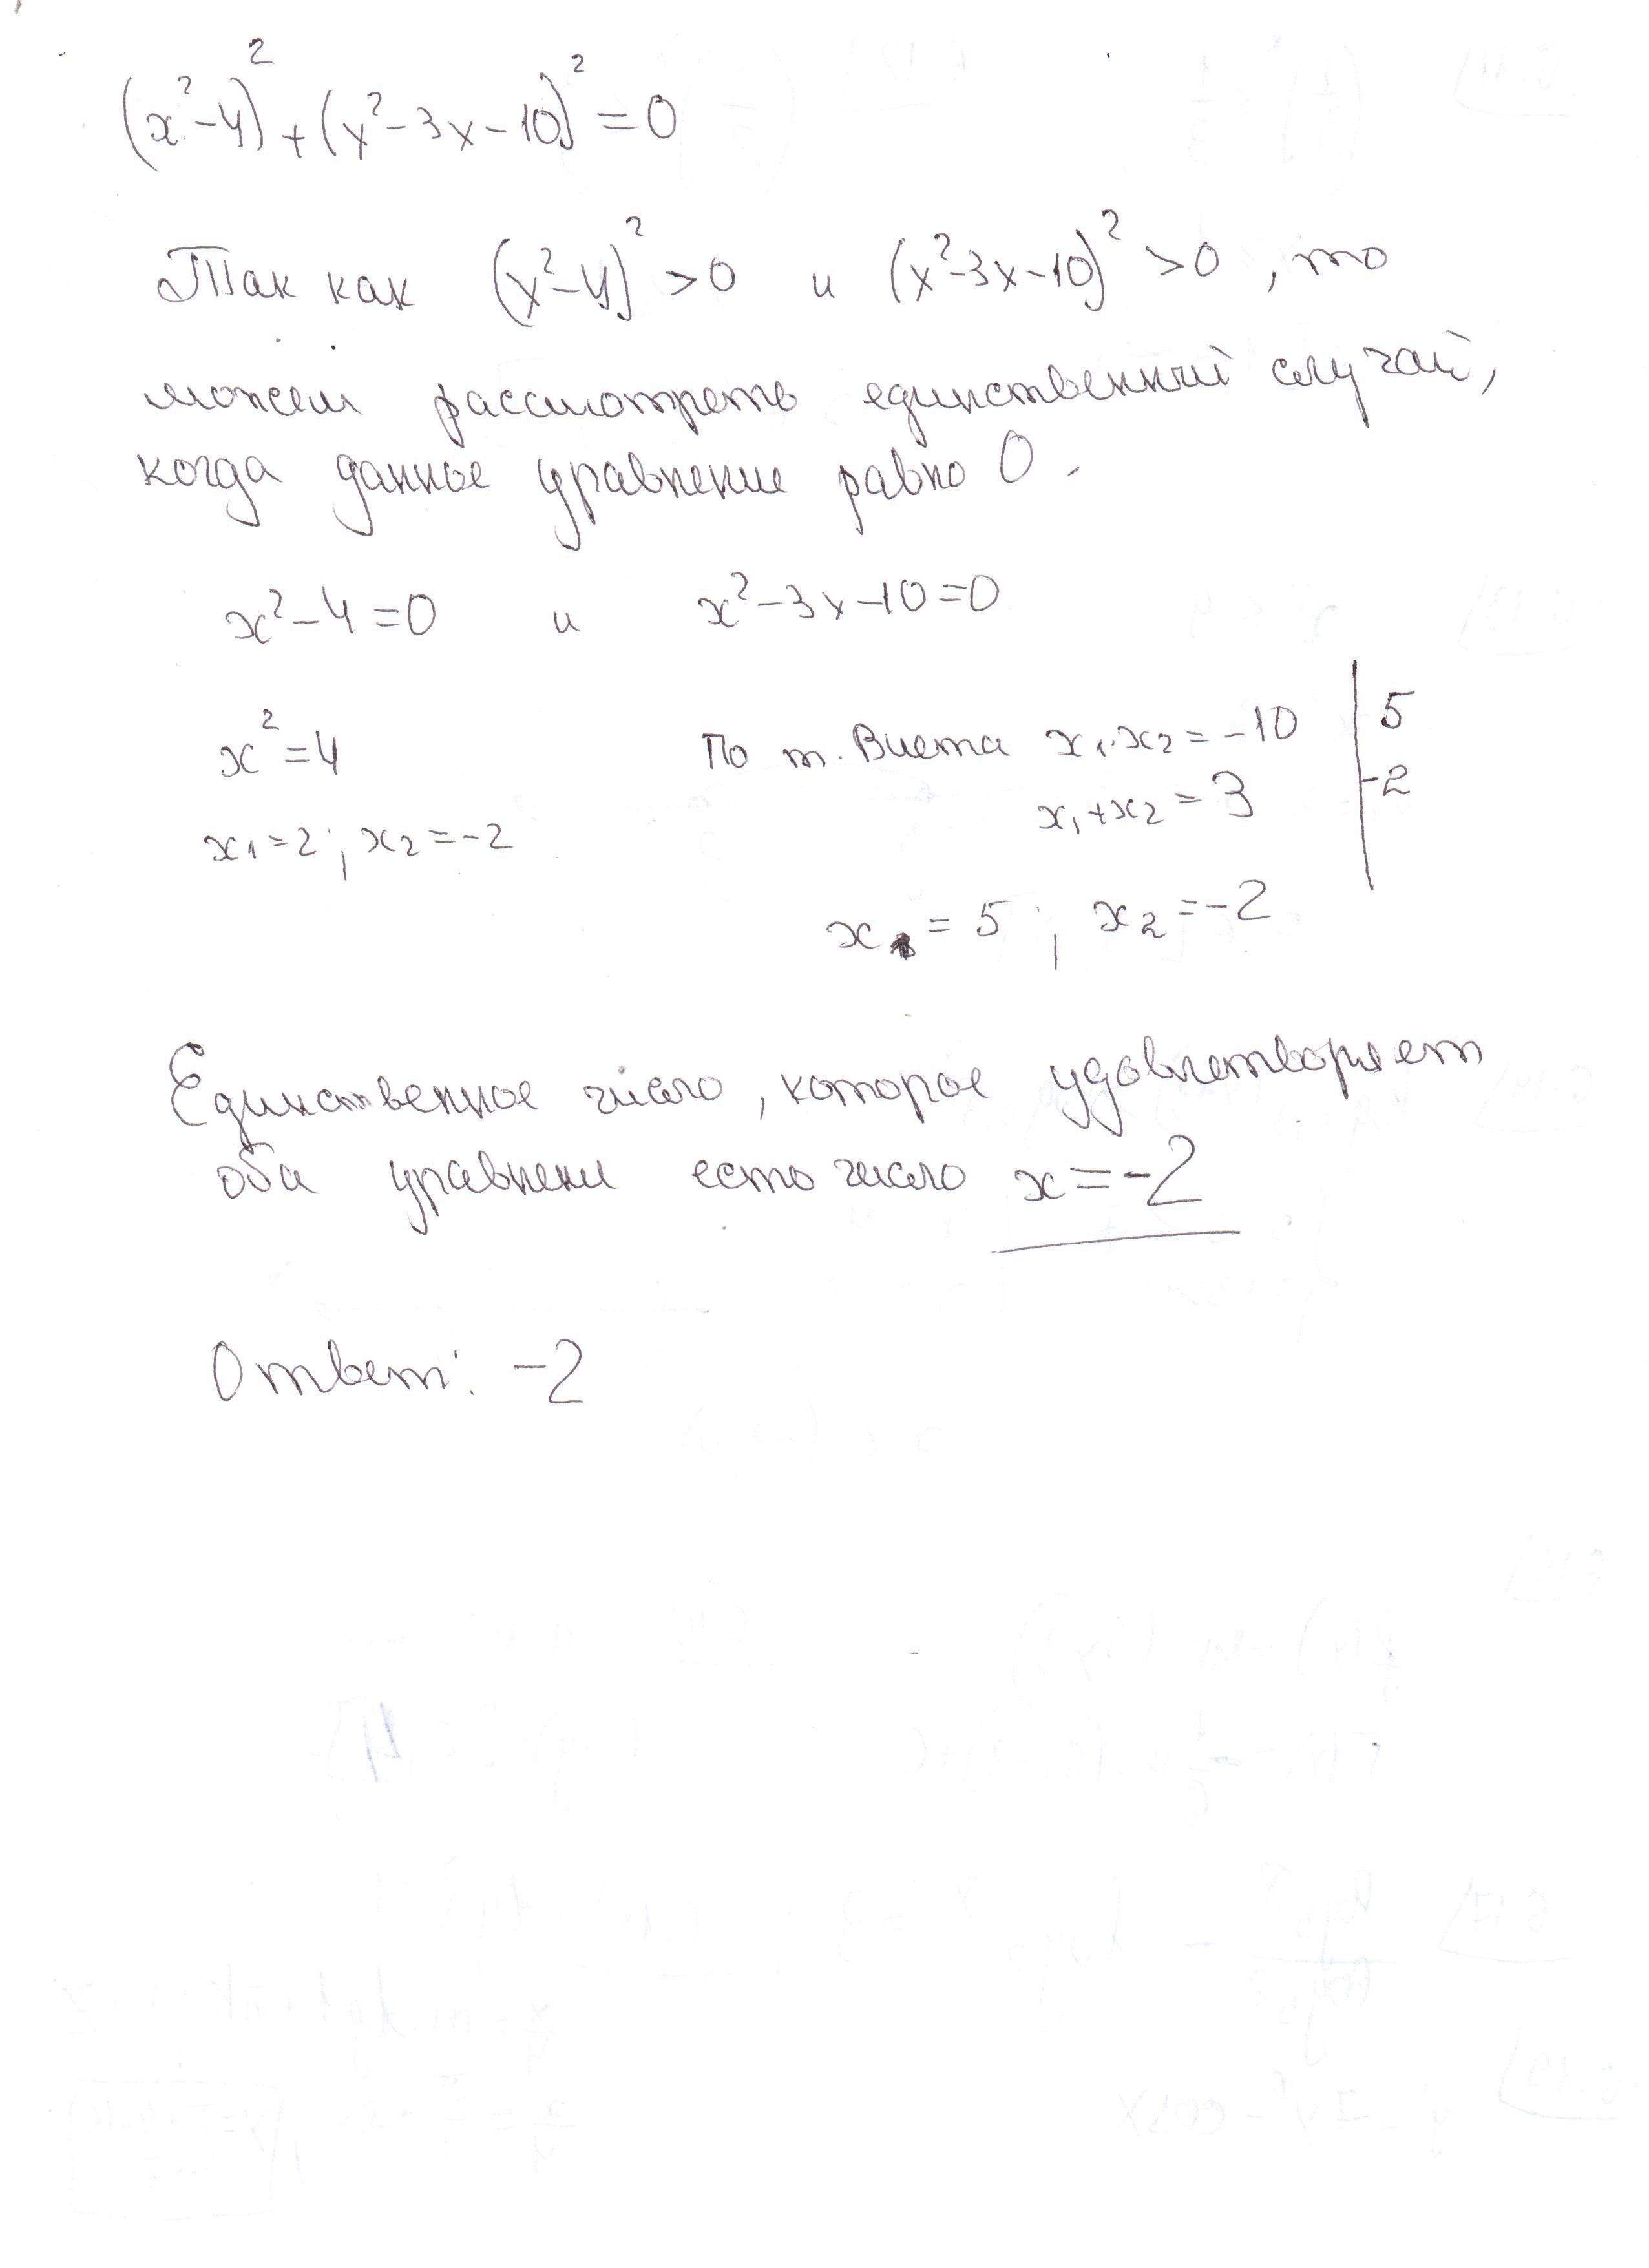 (x²-4)²+(x²-3x-10)²=0
Так как (x²-4)²>0 и (x²-3x-10)²>0, то
можем рассмотреть единственный случай,
когда данное уравнение равно 0.
x²-4=0 и x²-3x-10=0
x²=4 По т. Виета x₁·x₂=-10 | 5
x₁+x₂=3 | -2
x₁=2; x₂=-2
x₁=5; x₂=-2
Единственное число, которое удовлетворяет
оба уравнени есть число x=-2
Ответ: -2